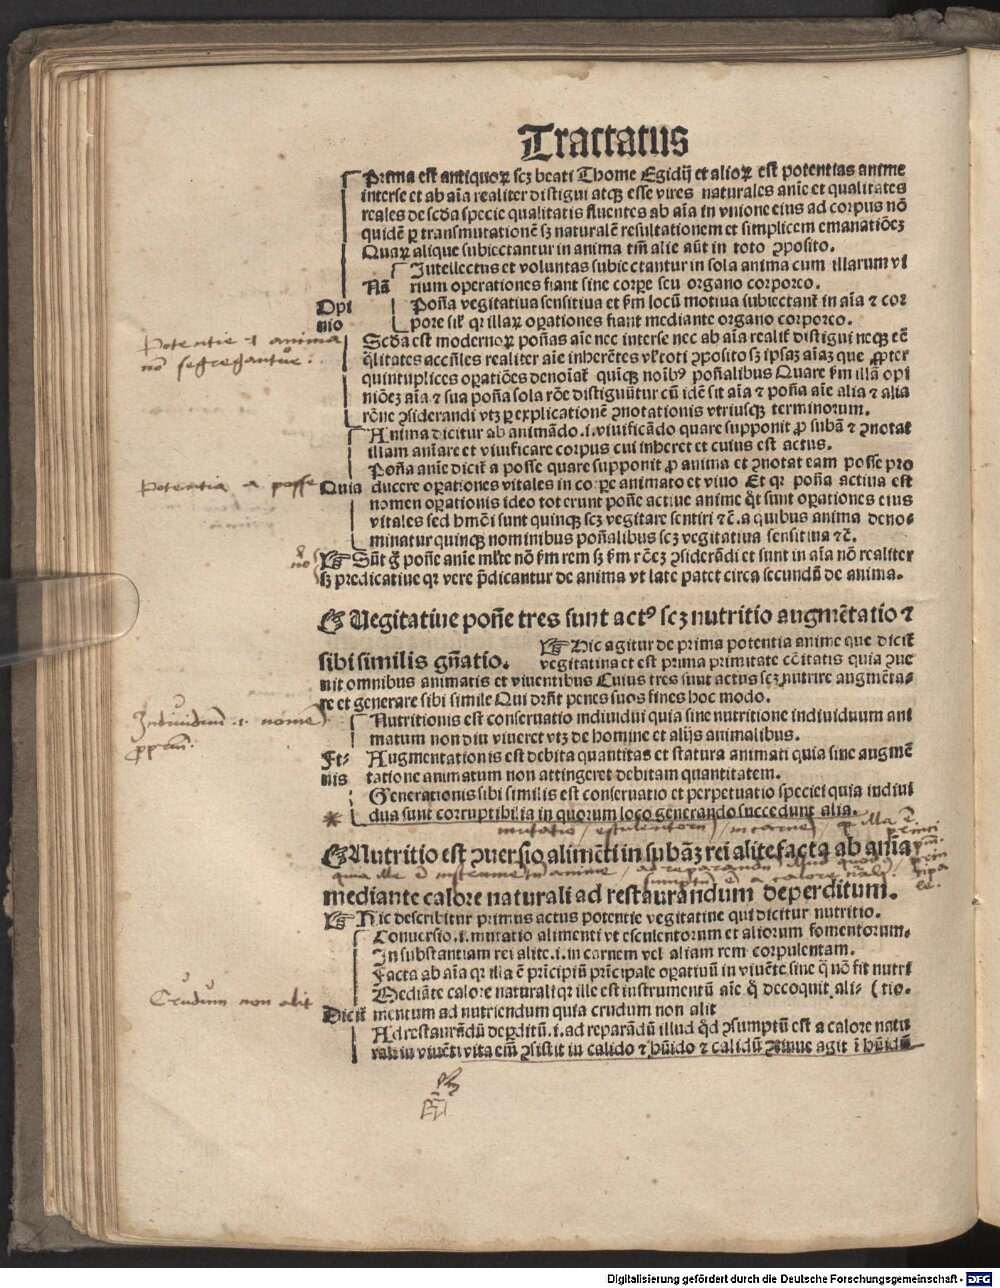 Tractatus
Prima est antiquoꝝ scz beati Thome Egidij et alioꝝ est potentias anime
interse et ab aīa realiter distigui atqꝫ esse vires naturales anīe et qualitates
reales de scḋa specie qualitatis fluentes ab aīa in vnione eius ad corpus nō
quidē ꝑ transmutationē sꝫ naturalē resultationem et simplicem emanatiōeꝫ
Quaꝝ alique subiectantur in anima tm̄ alie aūt in toto ꝯposito.
Intellectus et voluntas subiectantur in sola anima cum illarum vi
Nā rium operationes fiant sine corꝑe seu organo corporeo.
Opi Poña vegitatiua sensitiua et ẜm locū motiua subiectant̄ in aīa ⁊ cor
nio pore sil'r qꝛ illaꝝ oꝑationes fiant mediante organo corporeo.
Potentie et anima
nō segregantur.
Scḋa est modernoꝝ poñas aīe nec interse nec ab aīa realit̄ distigui neqꝫ eē
q̄litates accñles realiter aīe inherētes vl' toti ꝯposito sꝫ ipsaꝫ aīaꝫ que ꝓpter
quintuplices oꝑatiōes denoīat̄ quīqꝫ noībꝰ poñalibus Quare ẜm illā opi
niōeꝫ aīa ⁊ sua poña sola rōe distigūtur cū idē sit aīa ⁊ poña aīe alia ⁊ alia
rōne ꝯsiderandi vtꝫ ꝑ explicationē ꝯnotationis vtriusqꝫ terminorum.
Anima dicitur ab animādo .i. viuificādo quare supponit ꝓ subā ⁊ ꝯnotat
illam aniare et viuificare corpus cui inheret et cuius est actus.
Poña anīe dicit̄ a posse quare supponit ꝓ anima et ꝯnotat eam posse pro
Potentia a posse
Quia ducere oꝑationes vitales in corꝑe animato et viuo Et qꝛ poña actiua est
nomen oꝑationis ideo tot erunt poñe actiue anime q̊t sunt oꝑationes eius
vitales sed hmōi sunt quinqꝫ scꝫ vegitare sentiri ⁊c̄. a quibus anima deno-
minatur quinqꝫ nominibus poñalibus scꝫ vegitatiua sensitiua ⁊c̄.
☞ Sūt g̊ poñe anīe mlt̄e nō ẜm rem sꝫ ẜm rōeꝫ ꝯsiderādi et sunt in aīa nō realiter
sꝫ predicatiue qꝛ vere p̄dicantur de anima vt late patet circa secundū de anima.
☞ Uegitatiue poñe tres sunt actꝰ scꝫ nutritio augmētatio ⁊
sibi similis gñatio. ☞ Hic agitur de prima potentia anime que dicit̄
vegitatiua et est prima primitate cōitatis quia ꝯue
nit omnibus animatis et viuentibus Cuius tres sunt actus scꝫ nutrire augmēta-
re et generare sibi simile Qui drn̄t penes suos fines hoc modo.
Nutritionis est conseruatio indiuidui quia sine nutritione indiuiduum ani
matum non diu viueret vtꝫ de homine et alijs animalibus.
Fi- Augmentationis est debita quantitas et statura animati quia sine augmē
nis tatione animatum non attingeret debitam quantitatem.
Generationis sibi similis est conseruatio et perpetuatio speciei quia indiui
dua sunt corruptibilia in quorum loco generando succedunt alia.
mutatio / esculentorum / in carnem / qꝛ illa ē princi
☞ Nutritio est ꝯuersio alimēti in subāꝫ rei alite facta ab anīa
mediante calore naturali ad restaurandum deperditum.
☞ Hic describitur primus actus potentie vegitatiue qui dicitur nutritio.
Conuersio .i. mutatio alimenti vt esculentorum et aliorum fomentorum.
In substantiam rei alite .i. in carnem vel aliam rem corpulentam.
Facta ab aīa qꝛ illa ē prīcipiū prīcipale oꝑatiuū in viuēte sine q̊ nō fit nutri
Mediāte calore naturali qꝛ ille est instrumentū aīe q̊ decoquit ali- (tio.
Crudum non alit
Dicit̄ mentum ad nutriendum quia crudum non alit
Ad restaurādū deꝑditū .i. ad reparādū illud q̊d ꝯsumptū est a calore natu
rali in viuēti vita em̄ ꝯsistit in calido ⁊ hūido ⁊ calidū ꝯtinue agit ī hūidū
Digitalisierung gefördert durch die Deutsche Forschungsgemeinschaft - DFG